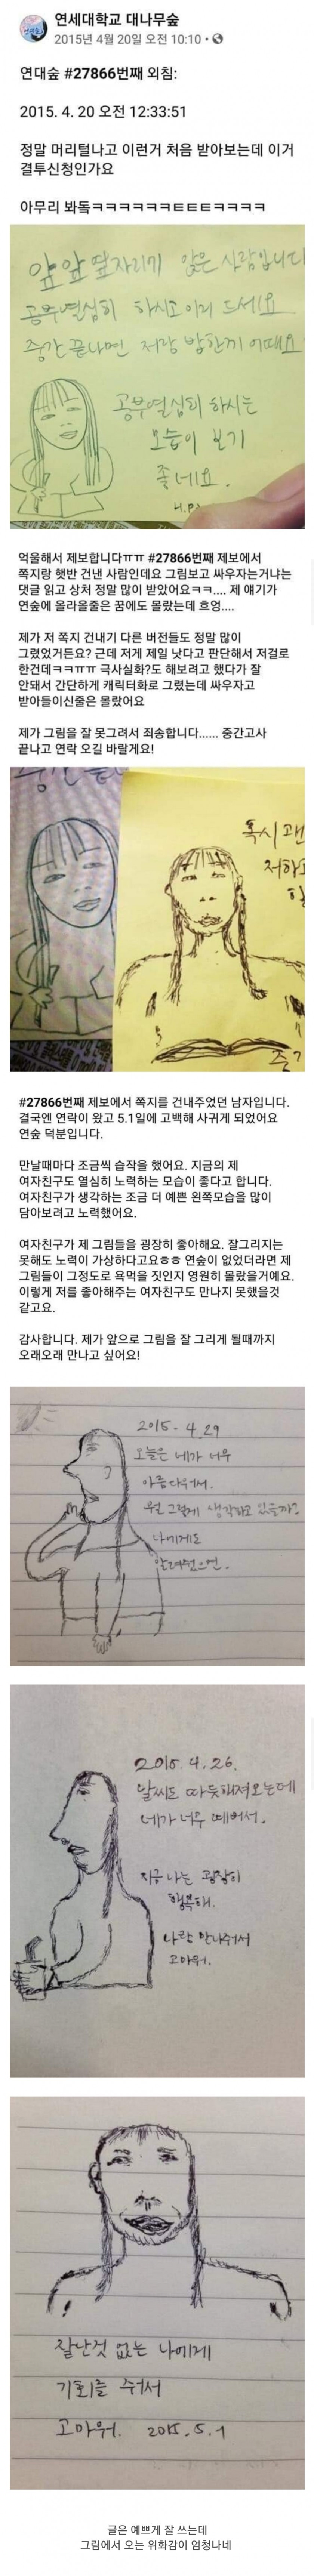 연세대학교 대나무숲
2015년 4월 20일 오전 10:10 ·
연대숲 #27866번째 외침:
2015. 4. 20 오전 12:33:51
정말 머리털나고 이런거 처음 받아보는데 이거
결투신청인가요
아무리 봐돜ㅋㅋㅋㅋㅋㅋㅌㅌㅌㅋㅋㅋㅋ
앞앞앞자리에 앉은 사람입니다
공부열심히 하시고 이거 드세요
중간 끝나면 저랑 밥한끼 어때요
공부열심히 하시는
모습이 보기
좋네요.
억울해서 제보합니다ㅠㅠ #27866번째 제보에서
쪽지랑 햇반 건낸 사람인데요 그림보고 싸우자는거냐는
댓글 읽고 상처 정말 많이 받았어요ㅋㅋ.... 제 얘기가
연숲에 올라올줄은 꿈에도 몰랐는데 흐엉....
제가 저 쪽지 건내기 다른 버전들도 정말 많이
그렸었거든요? 근데 저게 제일 낫다고 판단해서 저걸로
한건데ㅋㅋㅠㅠ 극사실화? 도 해보려고 했다가 잘
안돼서 간단하게 캐릭터화로 그렸는데 싸우자고
받아들이신줄은 몰랐어요
제가 그림을 잘 못그려서 죄송합니다...... 중간고사
끝나고 연락 오길 바랄게요!
혹시 괜
저하고
#27866번째 제보에서 쪽지를 건내주었던 남자입니다.
결국엔 연락이 왔고 5.1일에 고백해 사귀게 되었어요
연숲 덕분입니다.
만날때마다 조금씩 습작을 했어요. 지금의 제
여자친구도 열심히 노력하는 모습이 좋다고 합니다.
여자친구가 생각하는 조금 더 예쁜 왼쪽모습을 많이
담아보려고 노력했어요.
여자친구가 제 그림들을 굉장히 좋아해요. 잘그리지는
못해도 노력이 가상하다고요ㅎㅎ 연숲이 없었더라면 제
그림들이 그정도로 욕먹을 짓인지 영원히 몰랐을거예요.
이렇게 저를 좋아해주는 여자친구도 만나지 못했을것
같고요.
감사합니다. 제가 앞으로 그림을 잘 그리게 될때까지
오래오래 만나고 싶어요!
2015. 4. 29
오늘은 네가 너무
아름다워서.
뭘 그렇게 생각하고 있을까?
나에게도
알려줬으면.
2015. 4. 26.
날씨도 따듯해져오는데
네가 너무 예뻐서.
지금 나는 굉장히
행복해.
나랑 만나줘서
고마워.
잘난것 없는 나에게
기회를 줘서
고마워. 2015. 5. 1
글은 예쁘게 잘 쓰는데
그림에서 오는 위화감이 엄청나네